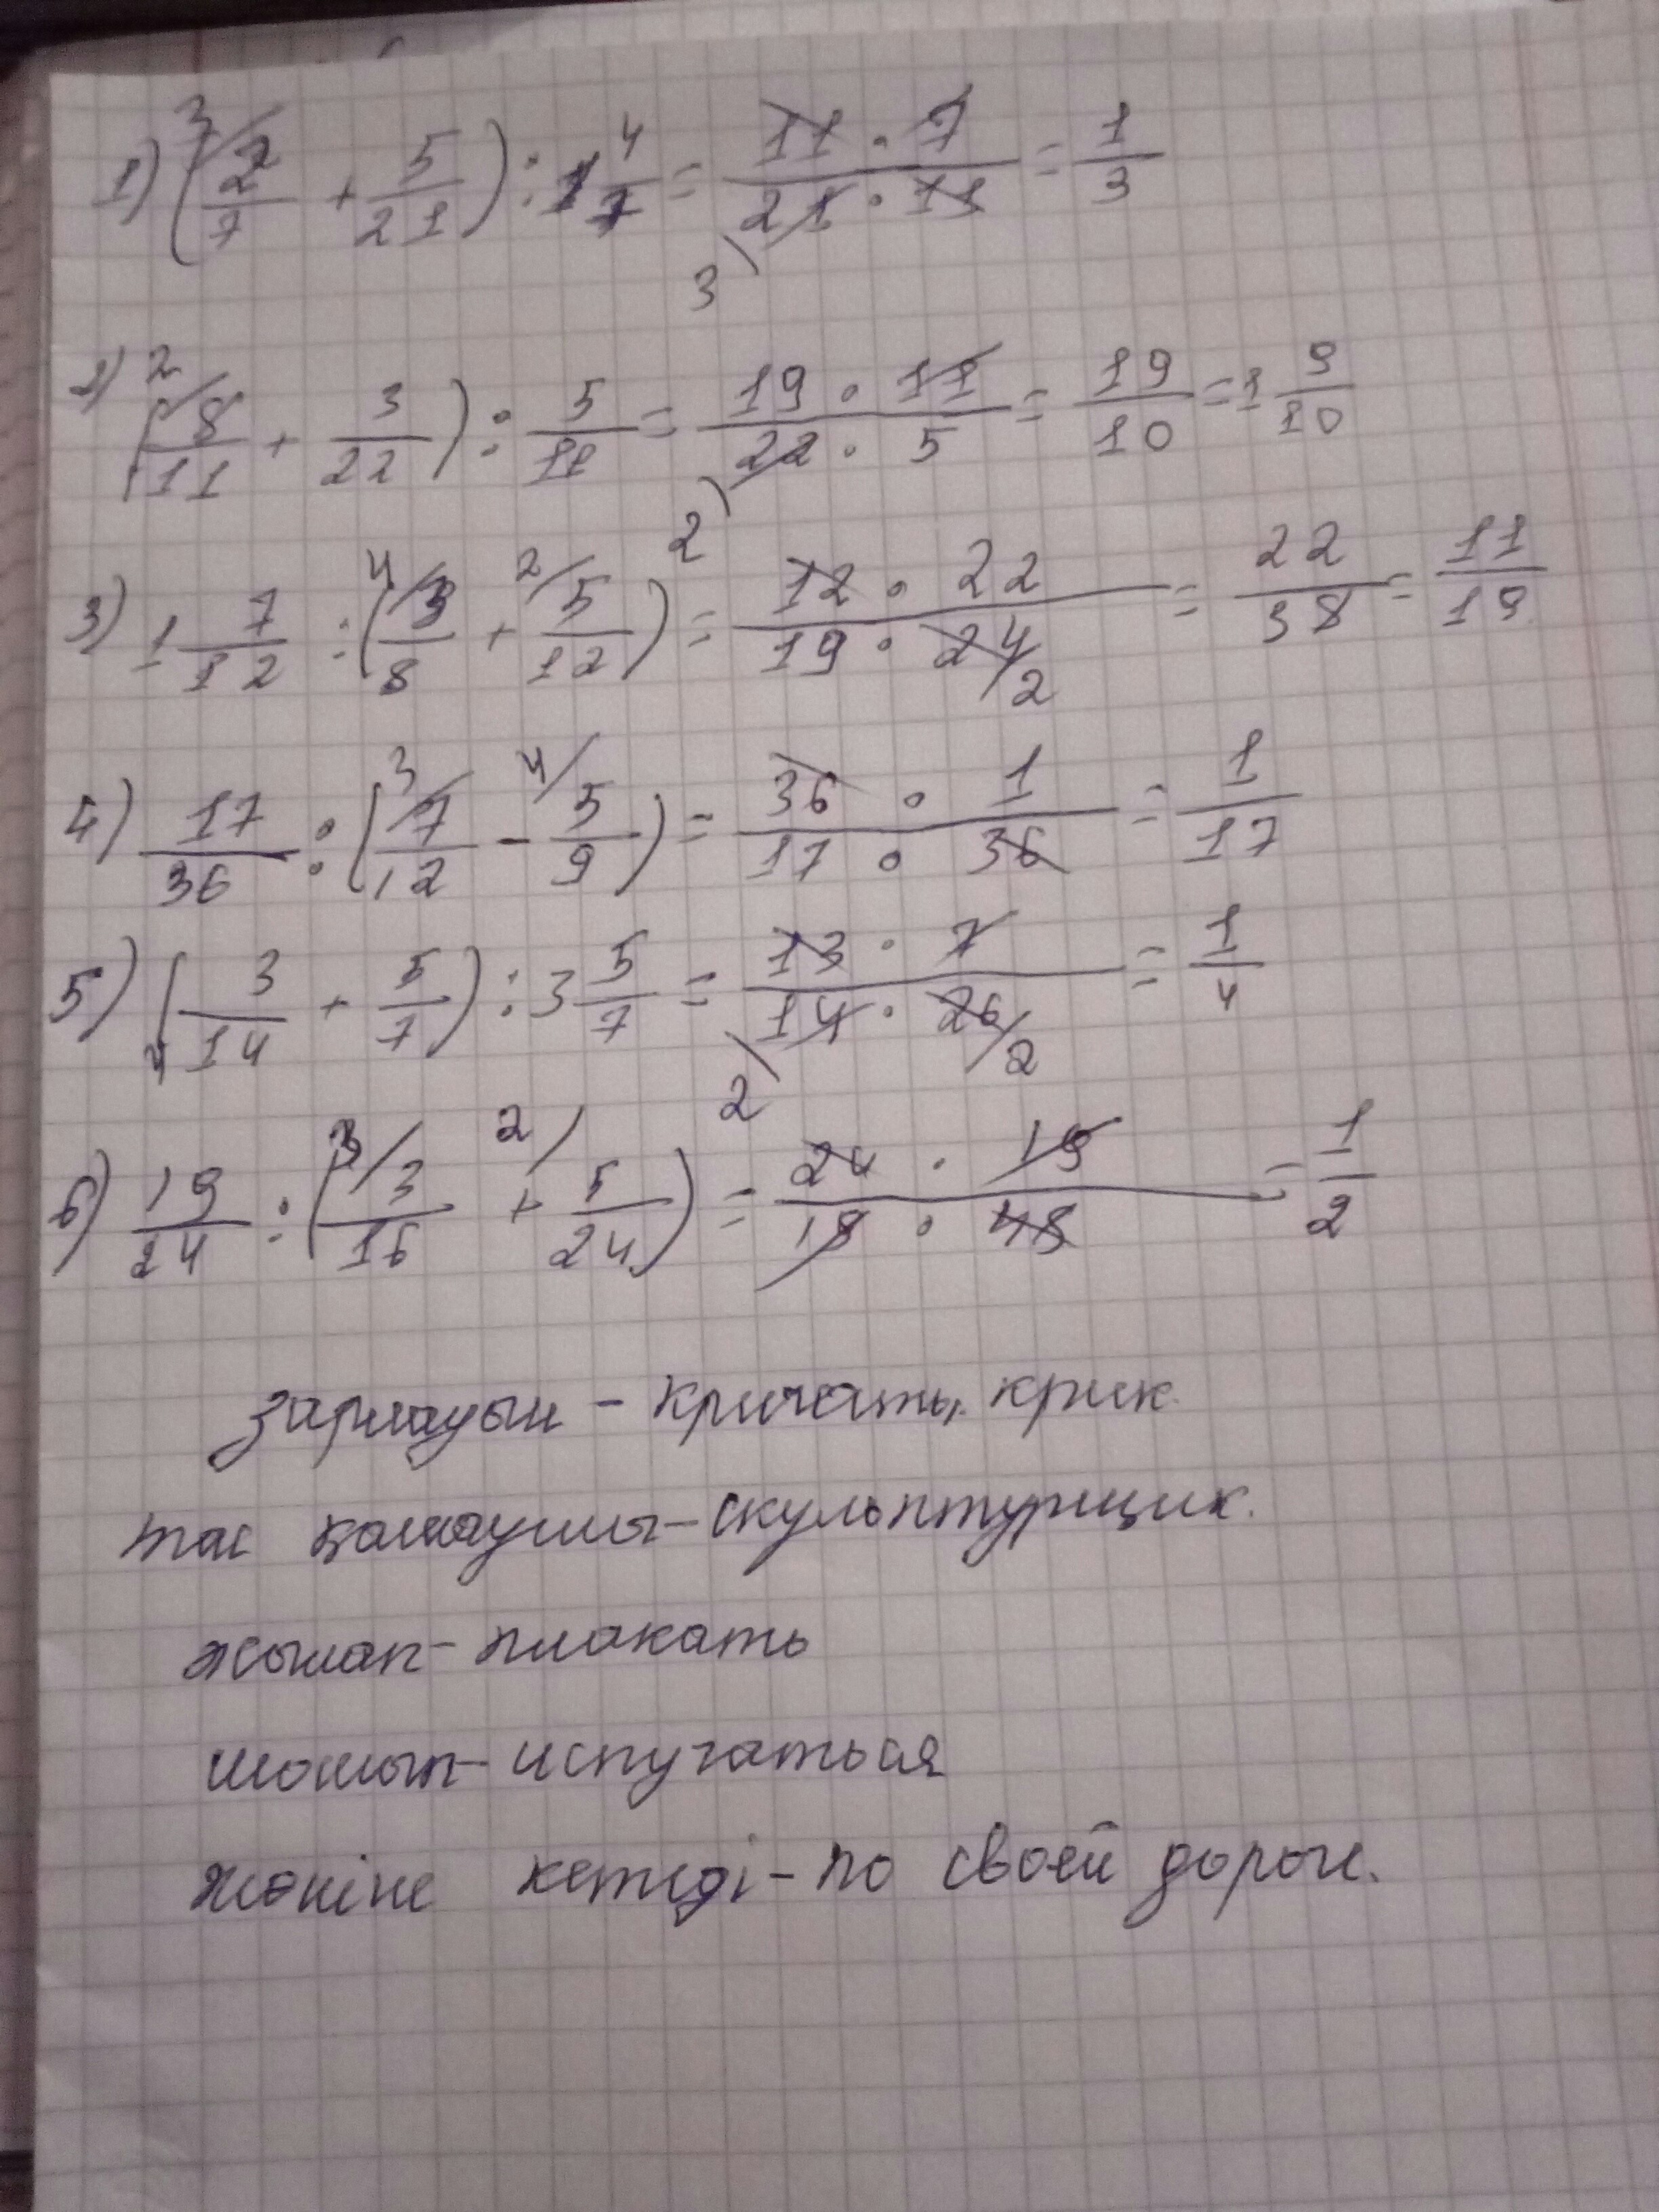 1) (3/ 2/7 + 5/21) : 1 4/7 = 11 · 7 / 21 · 11 = 1/3
3)
2) (2/ 8/11 + 3/22) : 5/11 = 19 · 11 / 22 · 5 = 19/10 = 1 9/10
2)
3) 1 7/12 : (4/ 3/8 + 2/ 5/12) = 12 · 22 / 19 · 24/2 = 22/38 = 11/19
4) 17/36 : (3/ 7/12 - 4/ 5/9) = 36 · 1 / 17 · 36 = 1/17
5) (3/14 + 5/7) : 3 5/7 = 13 · 7 / 14 · 26/2 = 1/4
2)
6) 19/24 : (3/ 3/16 + 2/ 5/24) = 24 · 19 / 19 · 48 = 1/2
зарлауын - кричать, крик.
тас қашаушы - скульптурщик.
жылап - плакать
шошып - испугаться
жөніне кетеді - по своей дороге.